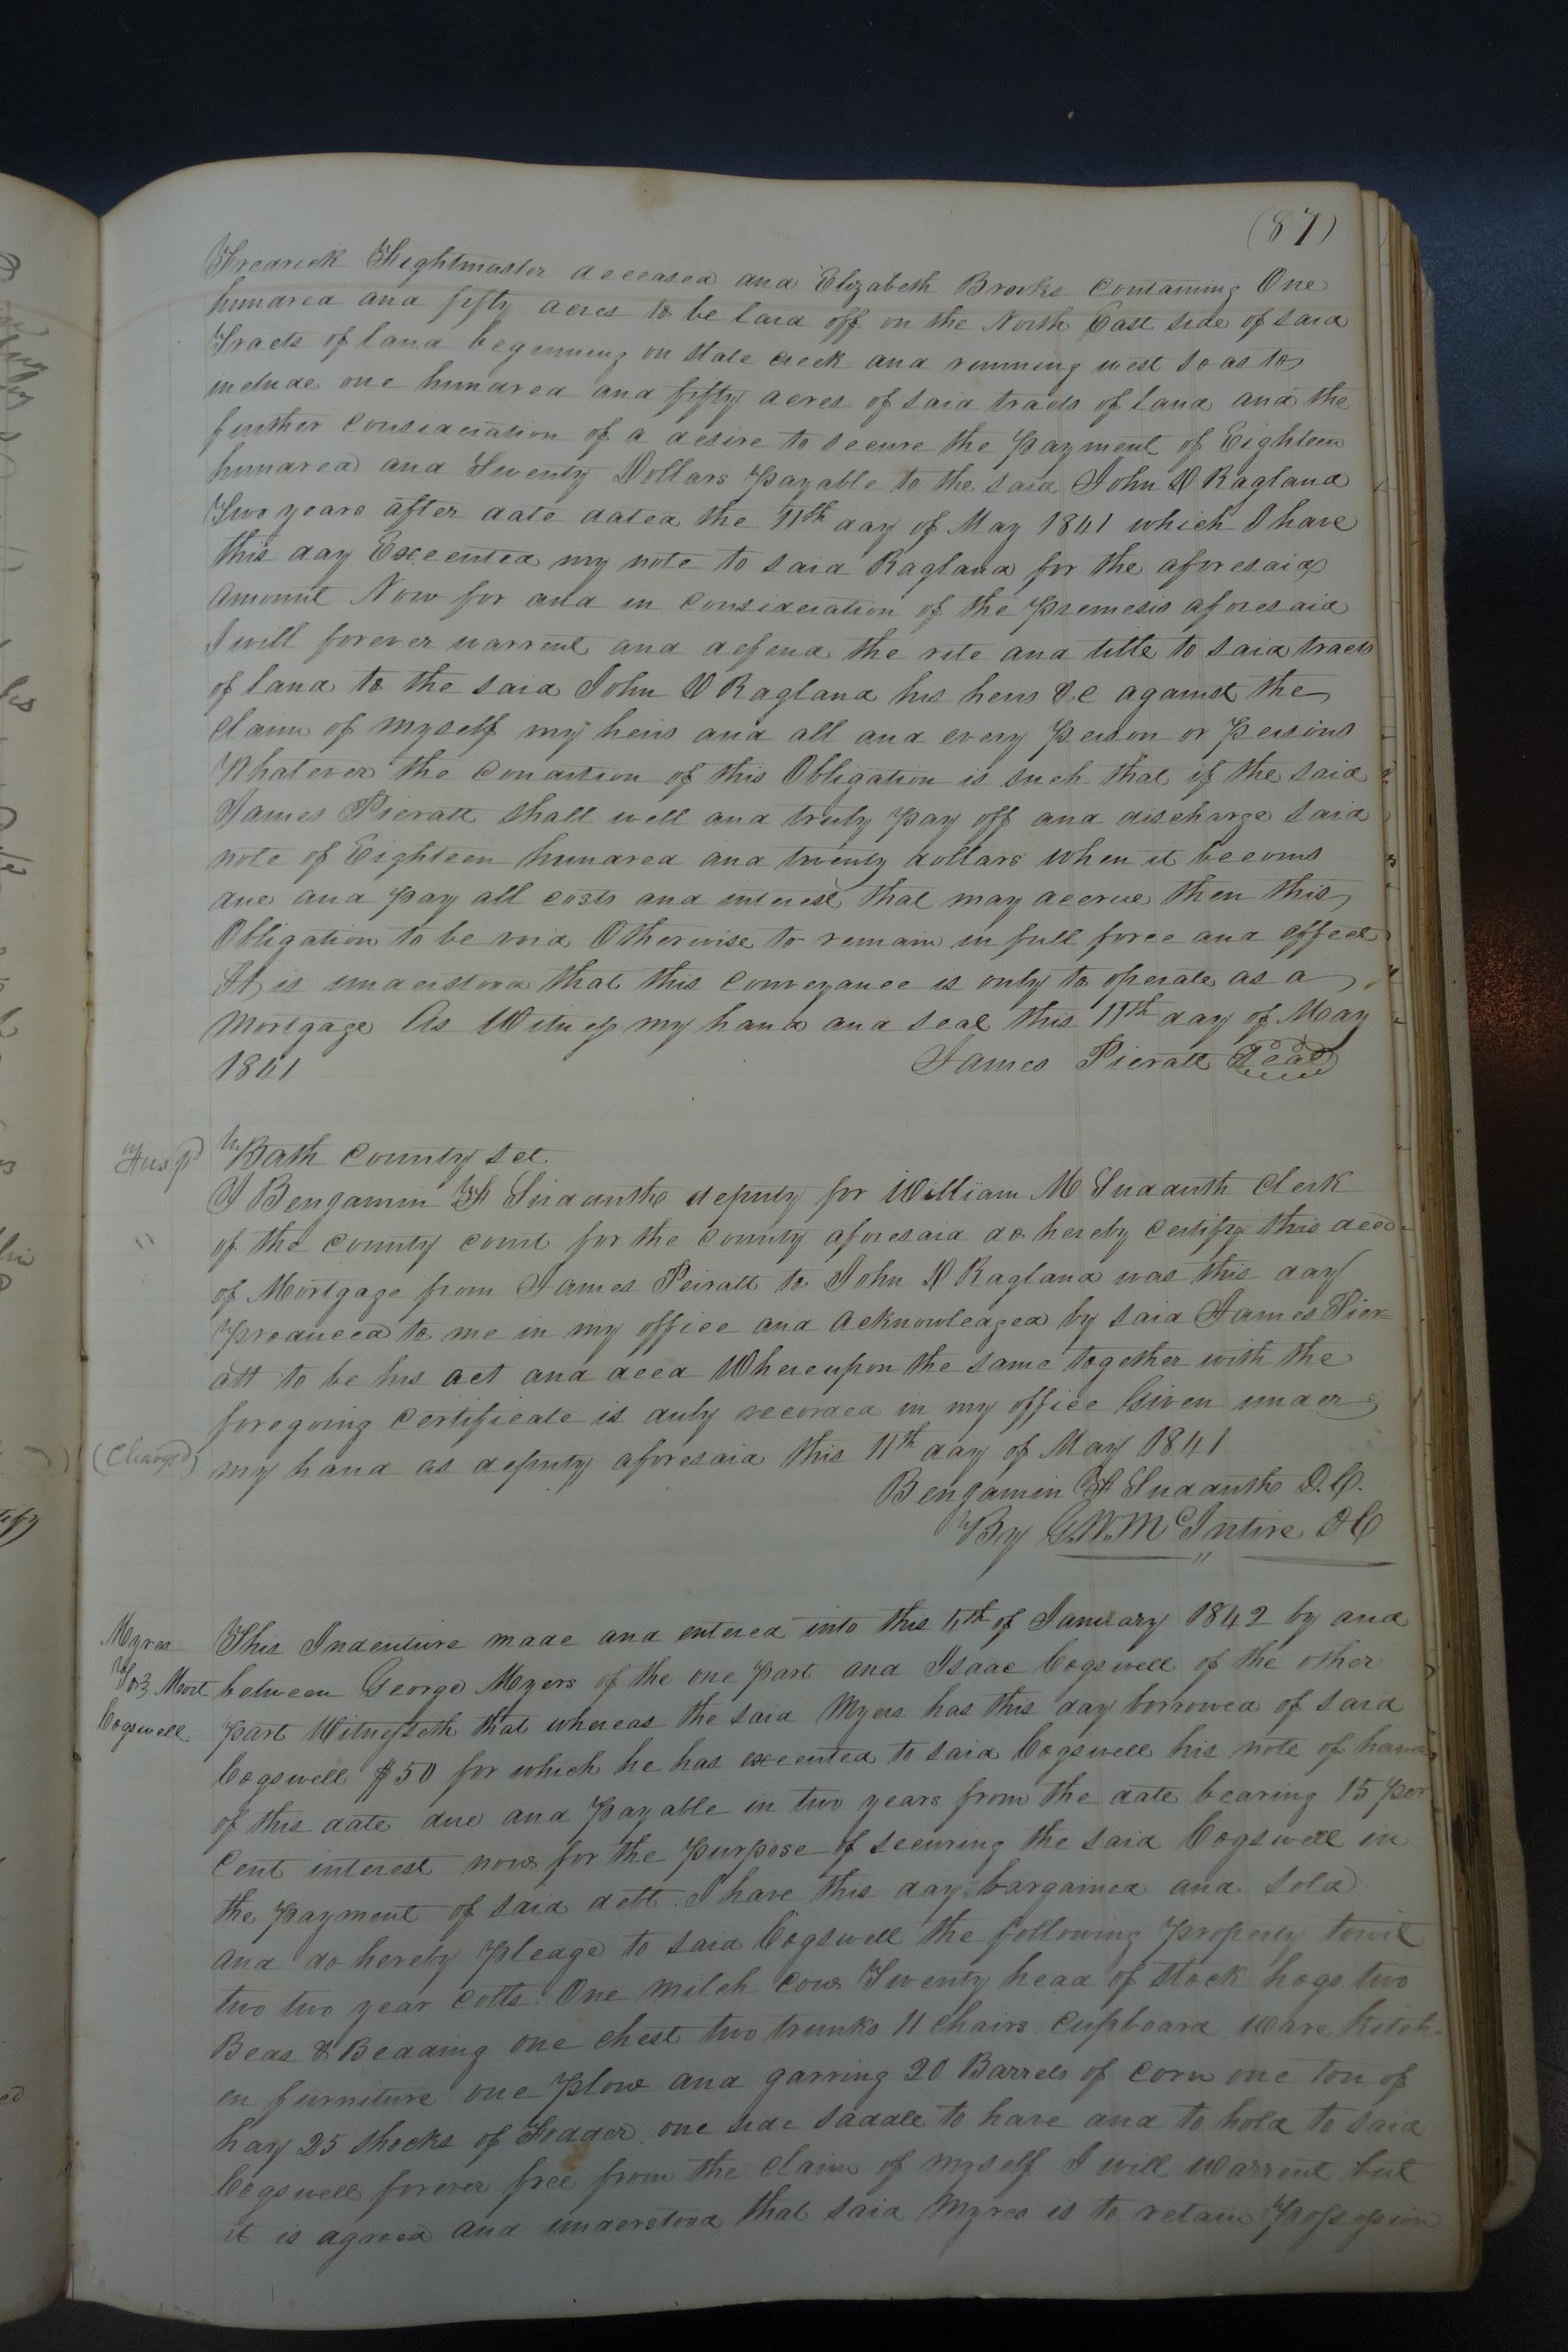 (87)
Fredrick Fightmaster deceased and Elizabeth Brooks Containing One
hundred and fifty acres to be laid off on the North East side of said
Tracts of land beginning on slate creek and running west so as to
include one hundred and fifty acres of said tracts of land and the
further Consideration of a desire to secure the payment of Eighteen
hundred and Twenty Dollars payable to the said John D Ragland
Two years after date dated the 11th day of May 1841 which I have
this day Executed my note to said Ragland for the aforesaid
Amount Now for and in Consideration of the premesis aforesaid
I will forever warrent and defend the rite and title to said tracts
of land to the said John D Ragland his heirs &c against the
claim of myself my heirs and all and every person or persons
Whatever the Condition of this Obligation is such that if the said
James Pieratt shall well and truly pay off and discharge said
note of Eighteen hundred and twenty dollars when it becoms
due and pay all costs and interest that may accrue then this
Obligation to be void Otherwise to remain in full force and effect
It is understood that this Conveyance is only to operate as a
Mortgage As Witness my hand and seal this 11th day of May
1841 James Pieratt Seal
Bath County Sct.
I Benjamin F Sudduth deputy for William M Sudduth Clerk
of the county court for the County aforesaid do hereby Certify this deed
of Mortgage from James Peiratt to John D Ragland was this day
produced to me in my office and Acknowledged by said James Pier=
att to be his act and deed Whereupon the same together with the
foregoing Certificate is duly recorded in my office Given under
(Charged) my hand as deputy aforesaid this 11th day of May 1841
Benjamin F Sudduth D.C.
By G.W. McIntire DC
Myres
To } Mort
Cogswell
This Indenture made and entered into this 4th of January 1842 by and
between George Myers of the one part and Isaac Cogswell of the other
part Witnesseth that whereas the said Myers has this day borrowed of said
Cogswell $50 for which he has executed to said Cogswell his note of hand
of this date due and payable in two years from the date bearing 15 per
Cent interest now for the purpose of securing the said Cogswell in
the payment of said dett. I have this day bargained and sold
and do hereby pledge to said Cogswell the following property towit
two two year colts. One milch cow Twenty head of stock hogs two
Beds & Bedding one chest two trunks 11 chairs Cupboard ware Kitch-
en furniture one plow and garring 20 Barrels of corn one ton of
hay 25 shocks of Fodder one side saddle to have and to hold to said
Cogswell forever free from the claim of myself I will warrent but
it is agreed and understood that said Myres is to retain possession